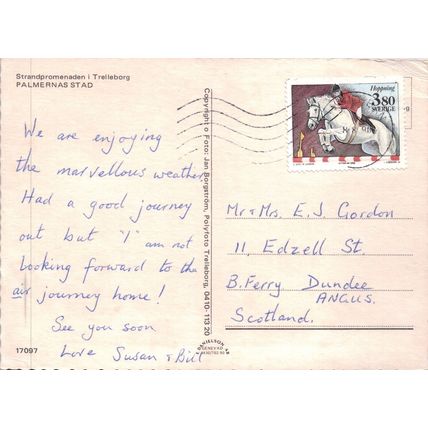 Strandpromenaden i Trelleborg
PALMERNAS STAD
We are enjoying
the marvellous weather.
Had a good journey
out but "I" am not
looking forward to the
air journey home!
See you soon
Love Susan & Bill
17097
Copyright o Foto: Jan Borgström, Polyfoto Trelleborg, 0410-113 20
Hoppning
3.80
SVERIGE
Mr & Mrs. E. J. Gordon
11, Edzell St.
B. Ferry Dundee
ANGUS.
Scotland.